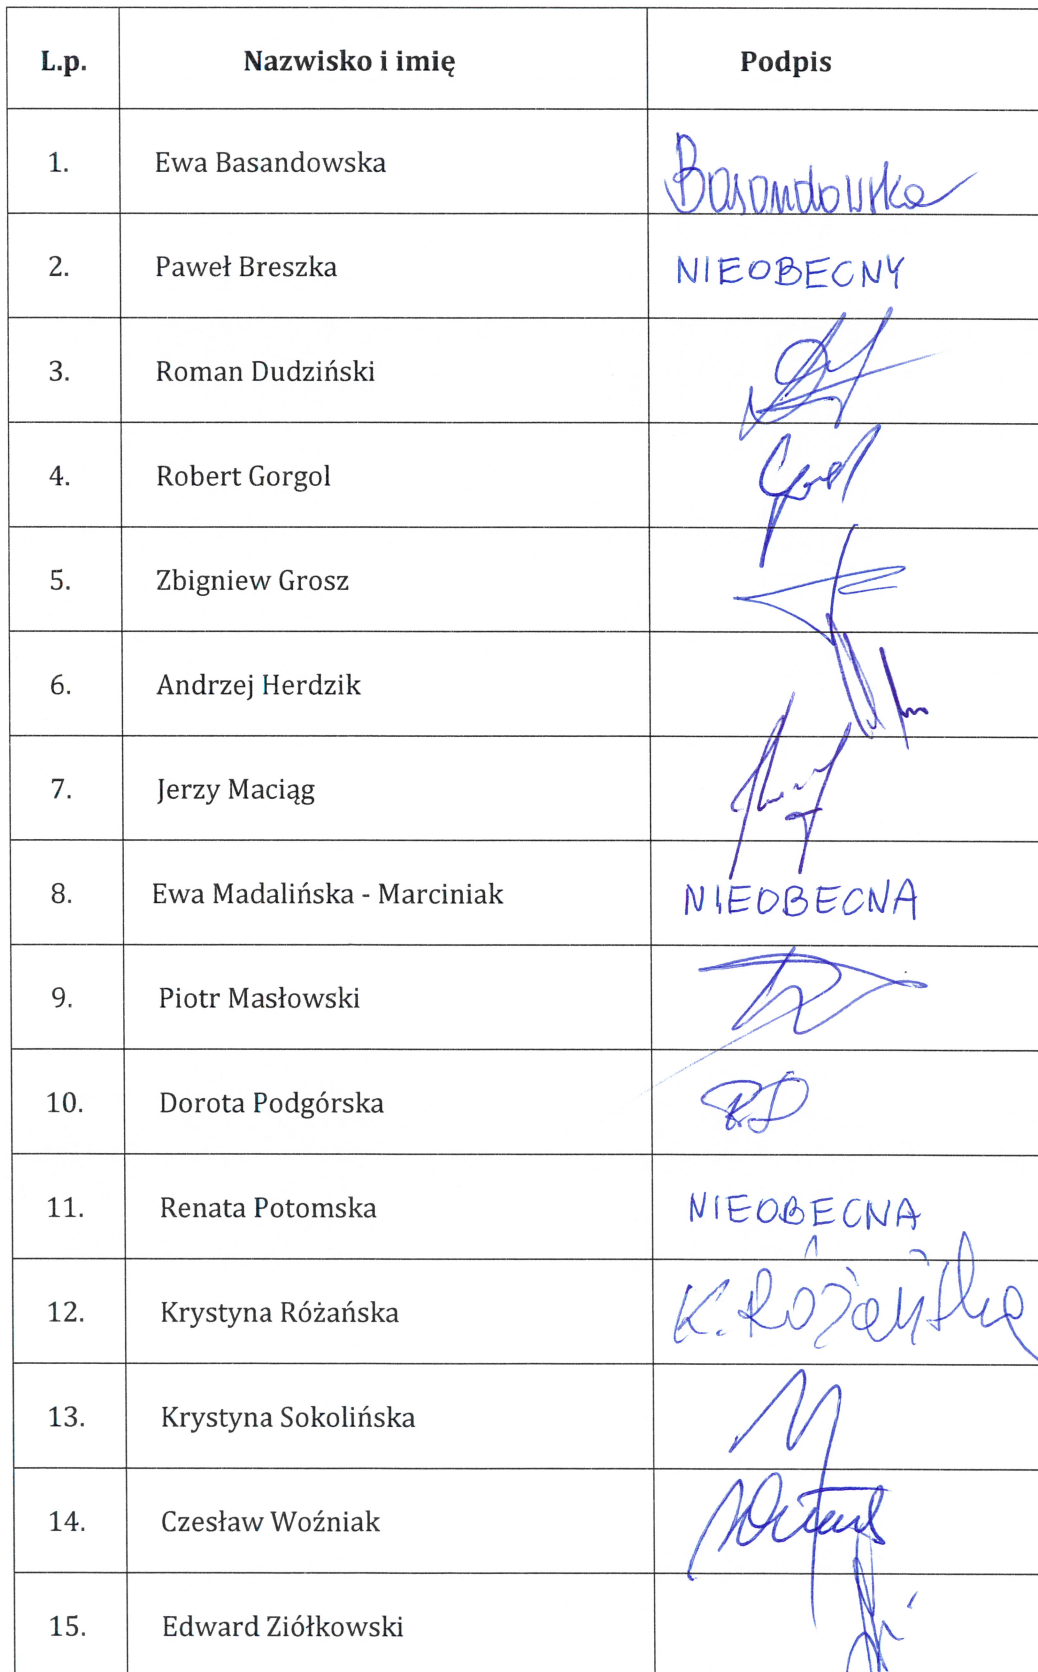 L.p. Nazwisko i imię Podpis
1. Ewa Basandowska Basandowska
2. Paweł Breszka NIEOBECNY
3. Roman Dudziński
4. Robert Gorgol
5. Zbigniew Grosz
6. Andrzej Herdzik
7. Jerzy Maciąg
8. Ewa Madalińska - Marciniak NIEOBECNA
9. Piotr Masłowski
10. Dorota Podgórska
11. Renata Potomska NIEOBECNA
12. Krystyna Różańska K. Różańska
13. Krystyna Sokolińska
14. Czesław Woźniak
15. Edward Ziółkowski